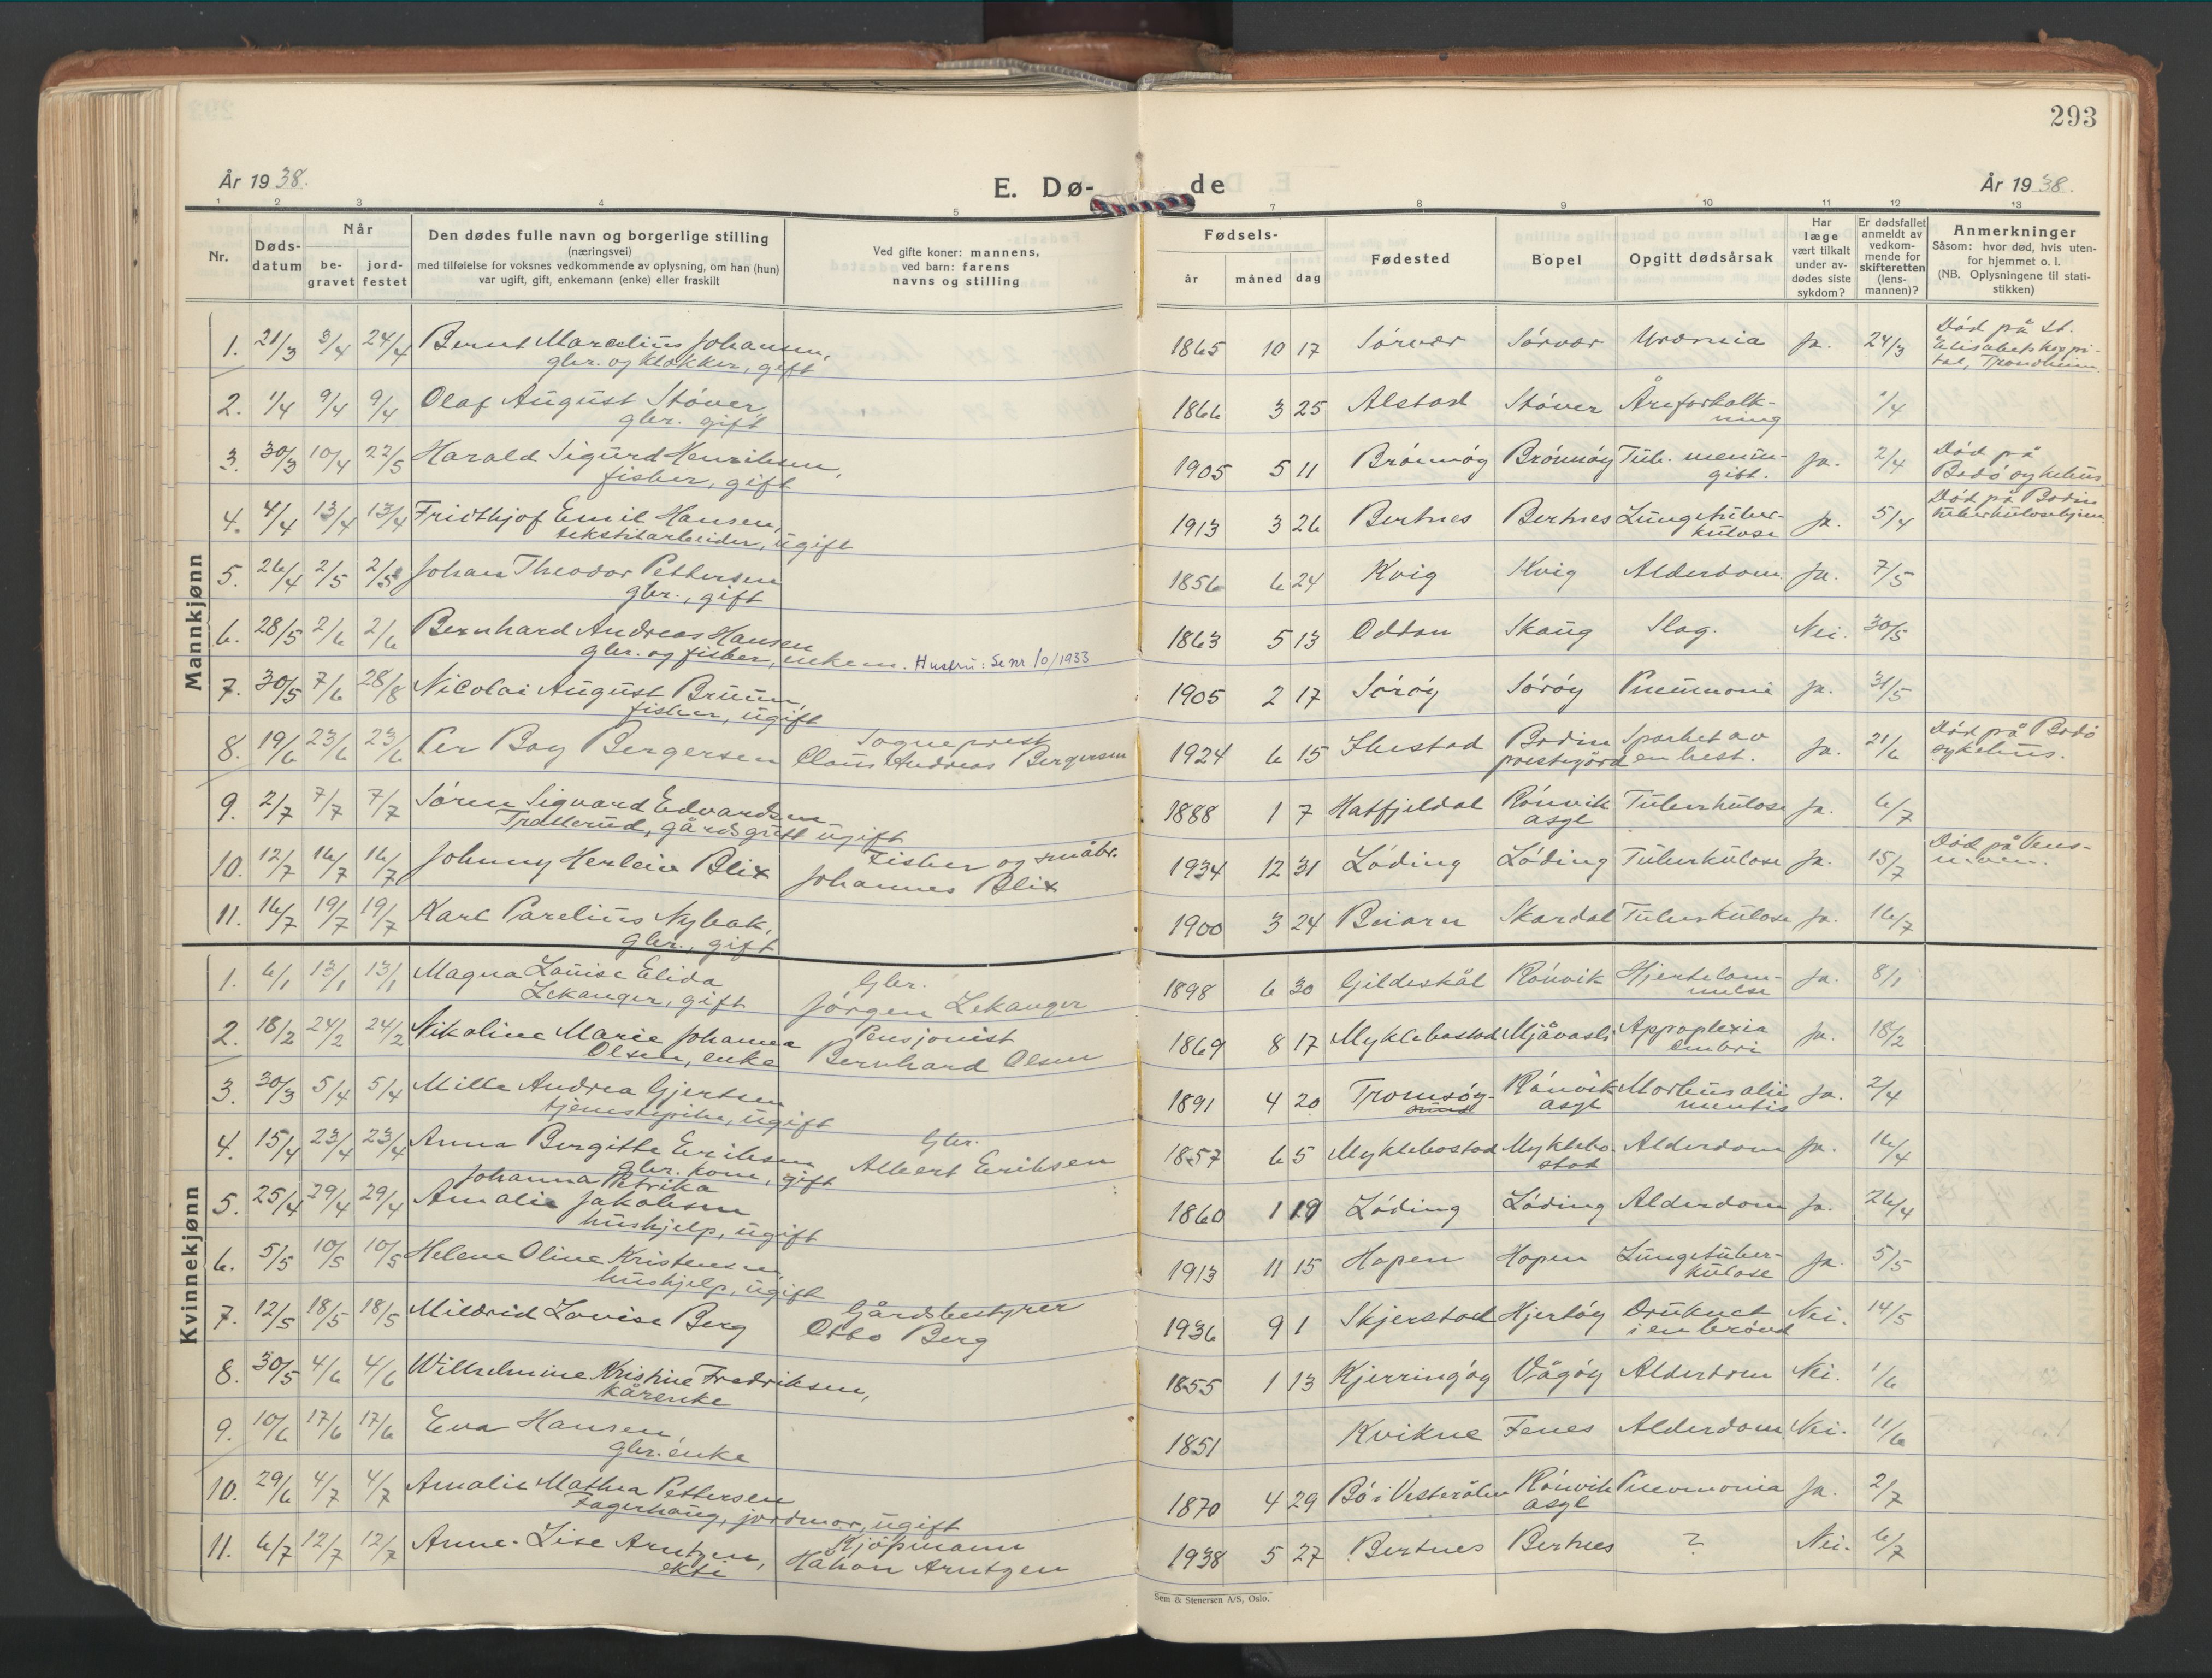 293
År 1938.
E. Dø-
de
År 1938.
1 2 3 4 5 7 8 9 10 11 12 13
Nr.
Døds-
datum
Når
be-
gravet
jord-
festet
Den dødes fulle navn og borgerlige stilling
(næringsvei)
med tilføielse for voksnes vedkommende av oplysning, om han (hun)
var ugift, gift, enkemann (enke) eller fraskilt
Ved gifte koner: mannens,
ved barn: farens
navns og stilling
Fødsels-
år måned dag
Fødested
Bopel
Opgitt dødsårsak
Har
læge
vært tilkalt
under av-
dødes siste
sykdom?
Er dødsfallet
anmeldt av
vedkom-
mende for
skifteretten
(lens-
mannen)?
Anmerkninger
Såsom: hvor død, hvis uten-
for hjemmet o. l.
(NB. Oplysningene til stati-
stikken)
Mannkjønn
1. 21/3 3/4 24/4 Bernt Marcelius Johansen, 1865 10 17 Sørvær Sørvær Uræmia Ja. 24/3 Død på St.
gbr. og klokker, gift Elisabets hospi-
tal, Trondheim
2. 1/4 9/4 9/4 Olaf August Støver, 1866 3 25 Alstad Støver Åreforkalk- 1/4
gbr. gift ning
3. 30/3 10/4 22/5 Harald Sigurd Henriksen, 1905 5 11 Brönnöy Brönnöy Tub. menin- Ja. 2/4 Død på
fisker, gift git. Bodö sykehus.
4. 4/4 13/4 13/4 Fridthjof Emil Hansen, 1913 3 26 Bertnes Bertnes Lungetuber- Ja. 5/4 Død på Bodin
tekstilarbeider, ugift kulose tuberkulosehjem
5. 26/4 2/5 2/5 Johan Theodor Pettersen 1856 6 24 Kvig Kvig Alderdom. Ja. 7/5
gbr., gift
6. 28/5 2/6 2/6 Bernhard Andreas Hansen 1863 5 13 Oddan Skaug Slag. Nei. 30/5
gbr. og fisker, enkem. Hustru: Se nr 10/1933
7. 30/5 7/6 28/8 Nicolai August Bruun, 1905 2 17 Söröy Söröy Pneumoni Ja. 31/5
fisker, ugift
8. 19/6 23/6 23/6 Per Boy Bergersen Sogneprest 1924 6 15 Ibestad Bodin Sparket av Ja. 21/6 Død på Bodö
Claus Andreas Bergersen prestegård en hest. sykehus.
9. 2/7 7/7 7/7 Sören Sigvard Edvardsen 1888 1 7 Hatfjeldal Rönvik Tuberkulose Ja. 6/7
Trallerud, gårdsgutt ugift asyl
10. 12/7 16/7 16/7 Johnny Herlein Blix Fisker og småbr. 1934 12 31 Löding Löding Tuberkulose Ja. 15/7 Død på Vens-
Johannes Blix
11. 16/7 19/7 19/7 Karl Parelius Nybak, 1900 3 24 Beiarn Skardal Tuberkulose Ja. 16/7
gbr., gift
Kvinnekjønn
1. 6/1 13/1 13/1 Magna Louise Elida Gbr. 1898 6 30 Gildeskål Rönvik Hjertelam- Ja. 8/1
Lekanger, gift Jörgen Lekanger melse
2. 18/2 24/2 24/2 Nikoline Marie Johanna Pensjonist 1869 8 17 Myklebostad Mjåvasli Appoplexia Ja. 18/2
Olsen, enke Bernhard Olsen
3. 30/3 5/4 5/4 Milla Andrea Gjertsen 1891 4 20 Tromsöy- Rönvik Morbus alii Ja. 2/4
tjenestepike, ugift sund asyl mentis
4. 15/4 23/4 23/4 Anna Bergitte Eriksen Gbr. 1857 6 5 Myklebostad Myklebo- Alderdom Ja. 16/4
gbr. kone, gift Albert Eriksen stad
Johanna Petrika
5. 25/4 29/4 29/4 Amalie Jakobsen 1860 1 19 Löding Löding Alderdom Ja. 26/4
hushjelp, ugift
6. 5/5 10/5 10/5 Helene Oline Kristensen, 1913 11 15 Hopen Hopen Lungetuber- Ja. 5/5
hushjelp, ugift kulose
7. 12/5 18/5 18/5 Mildrid Lovise Berg Gårdsbestyrer 1936 9 1 Skjerstad Hjertöy Druknet Nei. 14/5
Otto Berg i en brönd
8. 30/5 4/6 4/6 Wilhelmine Kristine Fredriksen, 1855 1 13 Kjerringöy Vågöy Alderdom Nei. 1/6
kårenke
9. 10/6 17/6 17/6 Eva Hansen, 1851 Kvikne Fenes Alderdom Nei. 11/6
gbr. enke
10. 29/6 4/7 4/7 Amalie Mathea Pettersen 1870 4 29 Bö i Vesterålen Rönvik Pneumonia Ja. 2/7
Fagerhaug, jordmor, ugift asyl
11. 6/7 12/7 12/7 Anne-Lise Arntzen, Kjöpmann 1938 5 27 Bertnes Bertnes ? Nei. 6/7
ekte Håkon Arntzen
Sem & Stenersen A/S, Oslo.